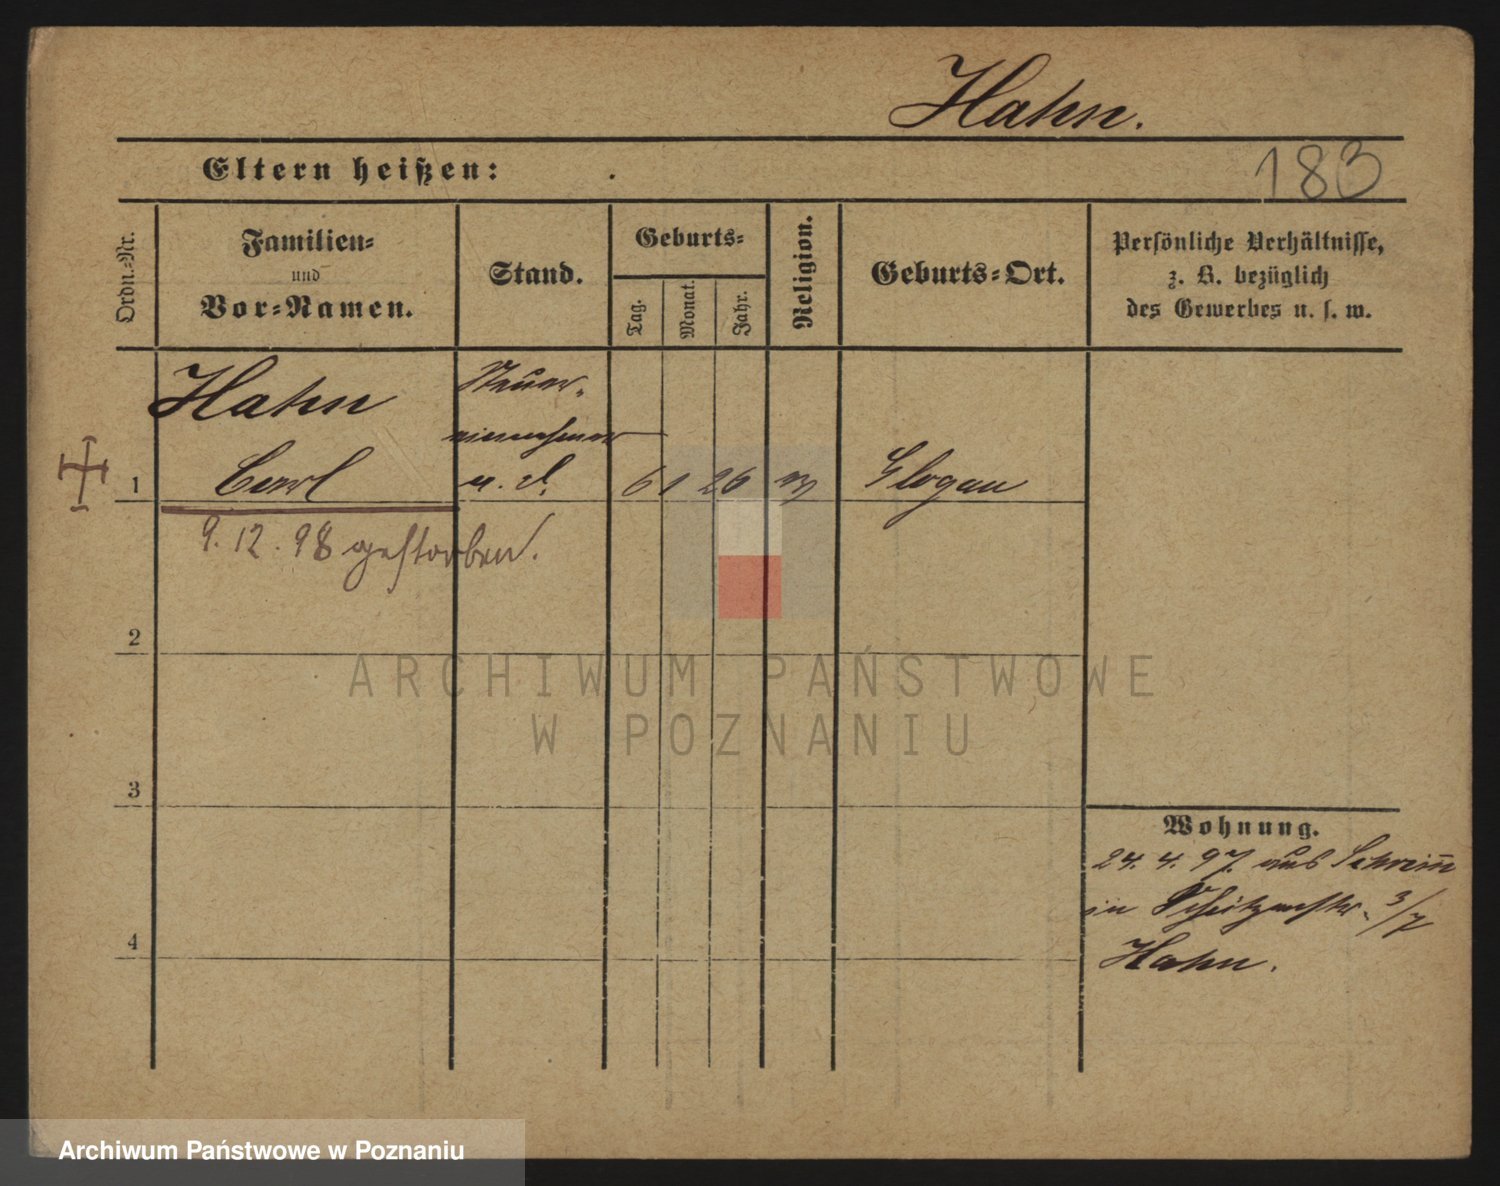 Hahn.
Eltern heißen:
183
Ordn.-Nr.
Familien-
und
Vor-Namen.
Stand.
Geburts-
Tag.
Monat.
Jahr.
Religion.
Geburts-Ort.
Persönliche Verhältnisse,
z. B. bezüglich
des Gewerbes u. s. w.
Hahn
Steuer-
einnehmer
1
Carl
a. D.
6
1
26
Glogau
9. 12. 98 gestorben.
2
3
4
Wohnung.
24. 4. 97 aus Schrim̅
in 3/7
Hahn.
ARCHIWUM PAŃSTWOWE
W POZNANIU
Archiwum Państwowe w Poznaniu